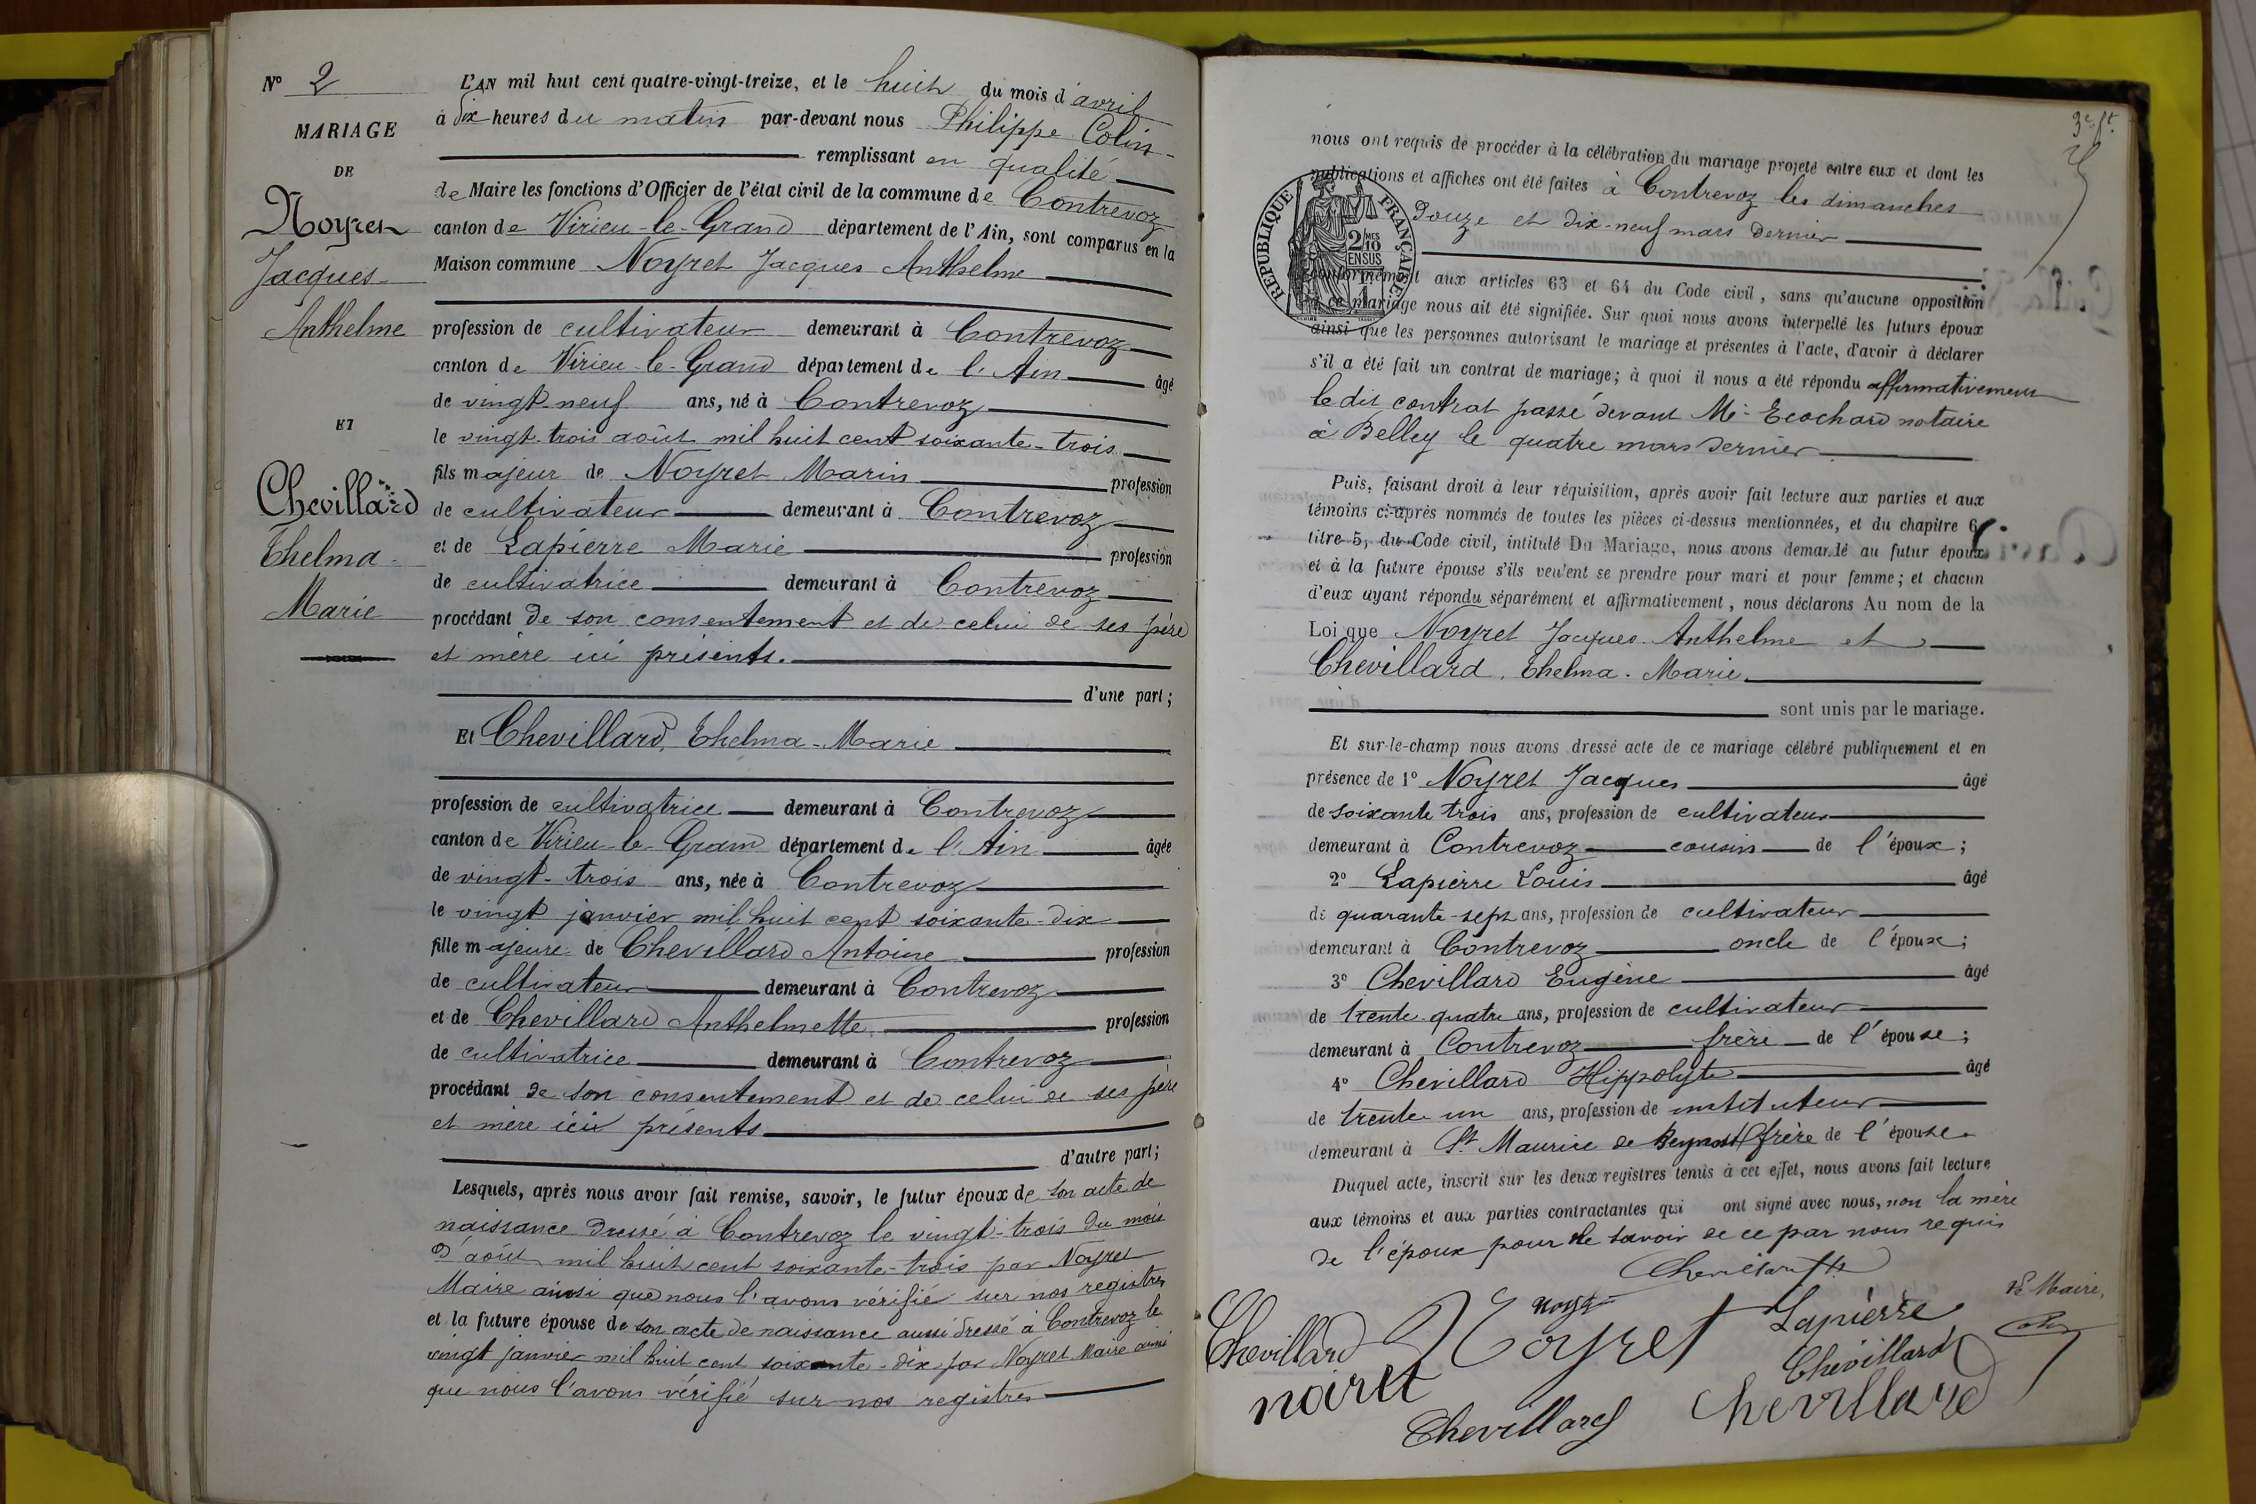 N° 2
MARIAGE
DE
Noyret
Jacques
Anthelme
ET
Chevillard
Thelma
Marie
L'AN mil huit cent quatre-vingt-treize, et le huit du mois d'avril
à dix heures du matin par-devant nous Philippe Colin
remplissant en qualité
de Maire les fonctions d'Officier de l'état civil de la commune de Contrevoz
canton de Virieu-le-Grand département de l'Ain, sont comparus en la
Maison commune Noyret Jacques Anthelme
profession de cultivateur demeurant à Contrevoz
canton de Virieu-le-Grand département de l'Ain âgé
de vingt-neuf ans, né à Contrevoz
le vingt-trois août mil huit cent soixante-trois
fils majeur de Noyret Marin profession
de cultivateur demeurant à Contrevoz
et de Lapierre Marie profession
de cultivatrice demeurant à Contrevoz
procédant de son consentement et de celui de ses père
et mère ici présents.
d'une part;
Et Chevillard, Thelma-Marie
profession de cultivatrice demeurant à Contrevoz
canton de Virieu-le-Grand département de l'Ain âgée
de vingt-trois ans, née à Contrevoz
le vingt janvier mil huit cent soixante-dix
fille majeure de Chevillard Antoine profession
de cultivateur demeurant à Contrevoz
et de Chevillard Anthelmette profession
de cultivatrice demeurant à Contrevoz
procédant de son consentement et de celui de ses père
et mère ici présents
d'autre part;
Lesquels, après nous avoir fait remise, savoir, le futur époux de son acte de
naissance dressé à Contrevoz le vingt-trois du mois
d'août mil huit cent soixante-trois par Noyret
Maire ainsi que nous l'avons vérifié sur nos registres
et la future épouse de son acte de naissance aussi dressé à Contrevoz le
vingt janvier mil huit cent soixante-dix par Noyret Maire ainsi
que nous l'avons vérifié sur nos registres
3e ft.
nous ont requis de procéder à la célébration du mariage projeté entre eux et dont les
publications et affiches ont été faites à Contrevoz les dimanches
douze et dix-neuf mars dernier
RÉPUBLIQUE FRANÇAISE
2 MES 10
EN SUS
conformément aux articles 63 et 64 du Code civil, sans qu'aucune opposition
à ce mariage nous ait été signifiée. Sur quoi nous avons interpellé les futurs époux
ainsi que les personnes autorisant le mariage et présentes à l'acte, d'avoir à déclarer
s'il a été fait un contrat de mariage; à quoi il nous a été répondu affirmativement
le dit contrat passé devant Me Ecochard notaire
à Belley le quatre mars dernier
Puis, faisant droit à leur réquisition, après avoir fait lecture aux parties et aux
témoins ci-après nommés de toutes les pièces ci-dessus mentionnées, et du chapitre 6,
titre 5, du Code civil, intitulé Du Mariage, nous avons demandé au futur époux
et à la future épouse s'ils veulent se prendre pour mari et pour femme; et chacun
d'eux ayant répondu séparément et affirmativement, nous déclarons Au nom de la
Loi que Noyret Jacques Anthelme et
Chevillard, Thelma-Marie
sont unis par le mariage.
Et sur-le-champ nous avons dressé acte de ce mariage célébré publiquement et en
présence de 1° Noyret Jacques âgé
de soixante trois ans, profession de cultivateur
demeurant à Contrevoz cousin de l'époux;
2° Lapierre Louis âgé
de quarante-sept ans, profession de cultivateur
demeurant à Contrevoz oncle de l'époux;
3° Chevillard Eugène âgé
de trente quatre ans, profession de cultivateur
demeurant à Contrevoz frère de l'épouse;
4° Chevillard Hippolyte âgé
de trente un ans, profession de instituteur
demeurant à St Maurice de Beynost frère de l'épouse.
Duquel acte, inscrit sur les deux registres tenus à cet effet, nous avons fait lecture
aux témoins et aux parties contractantes qui ont signé avec nous, non la mère
de l'époux pour ne savoir de ce par nous requis
Chevillard
Chevillard
Noyret
Noyret
Lapierre
Le Maire,
Colin
noiret
Chevillard
Chevillard
Chevillard